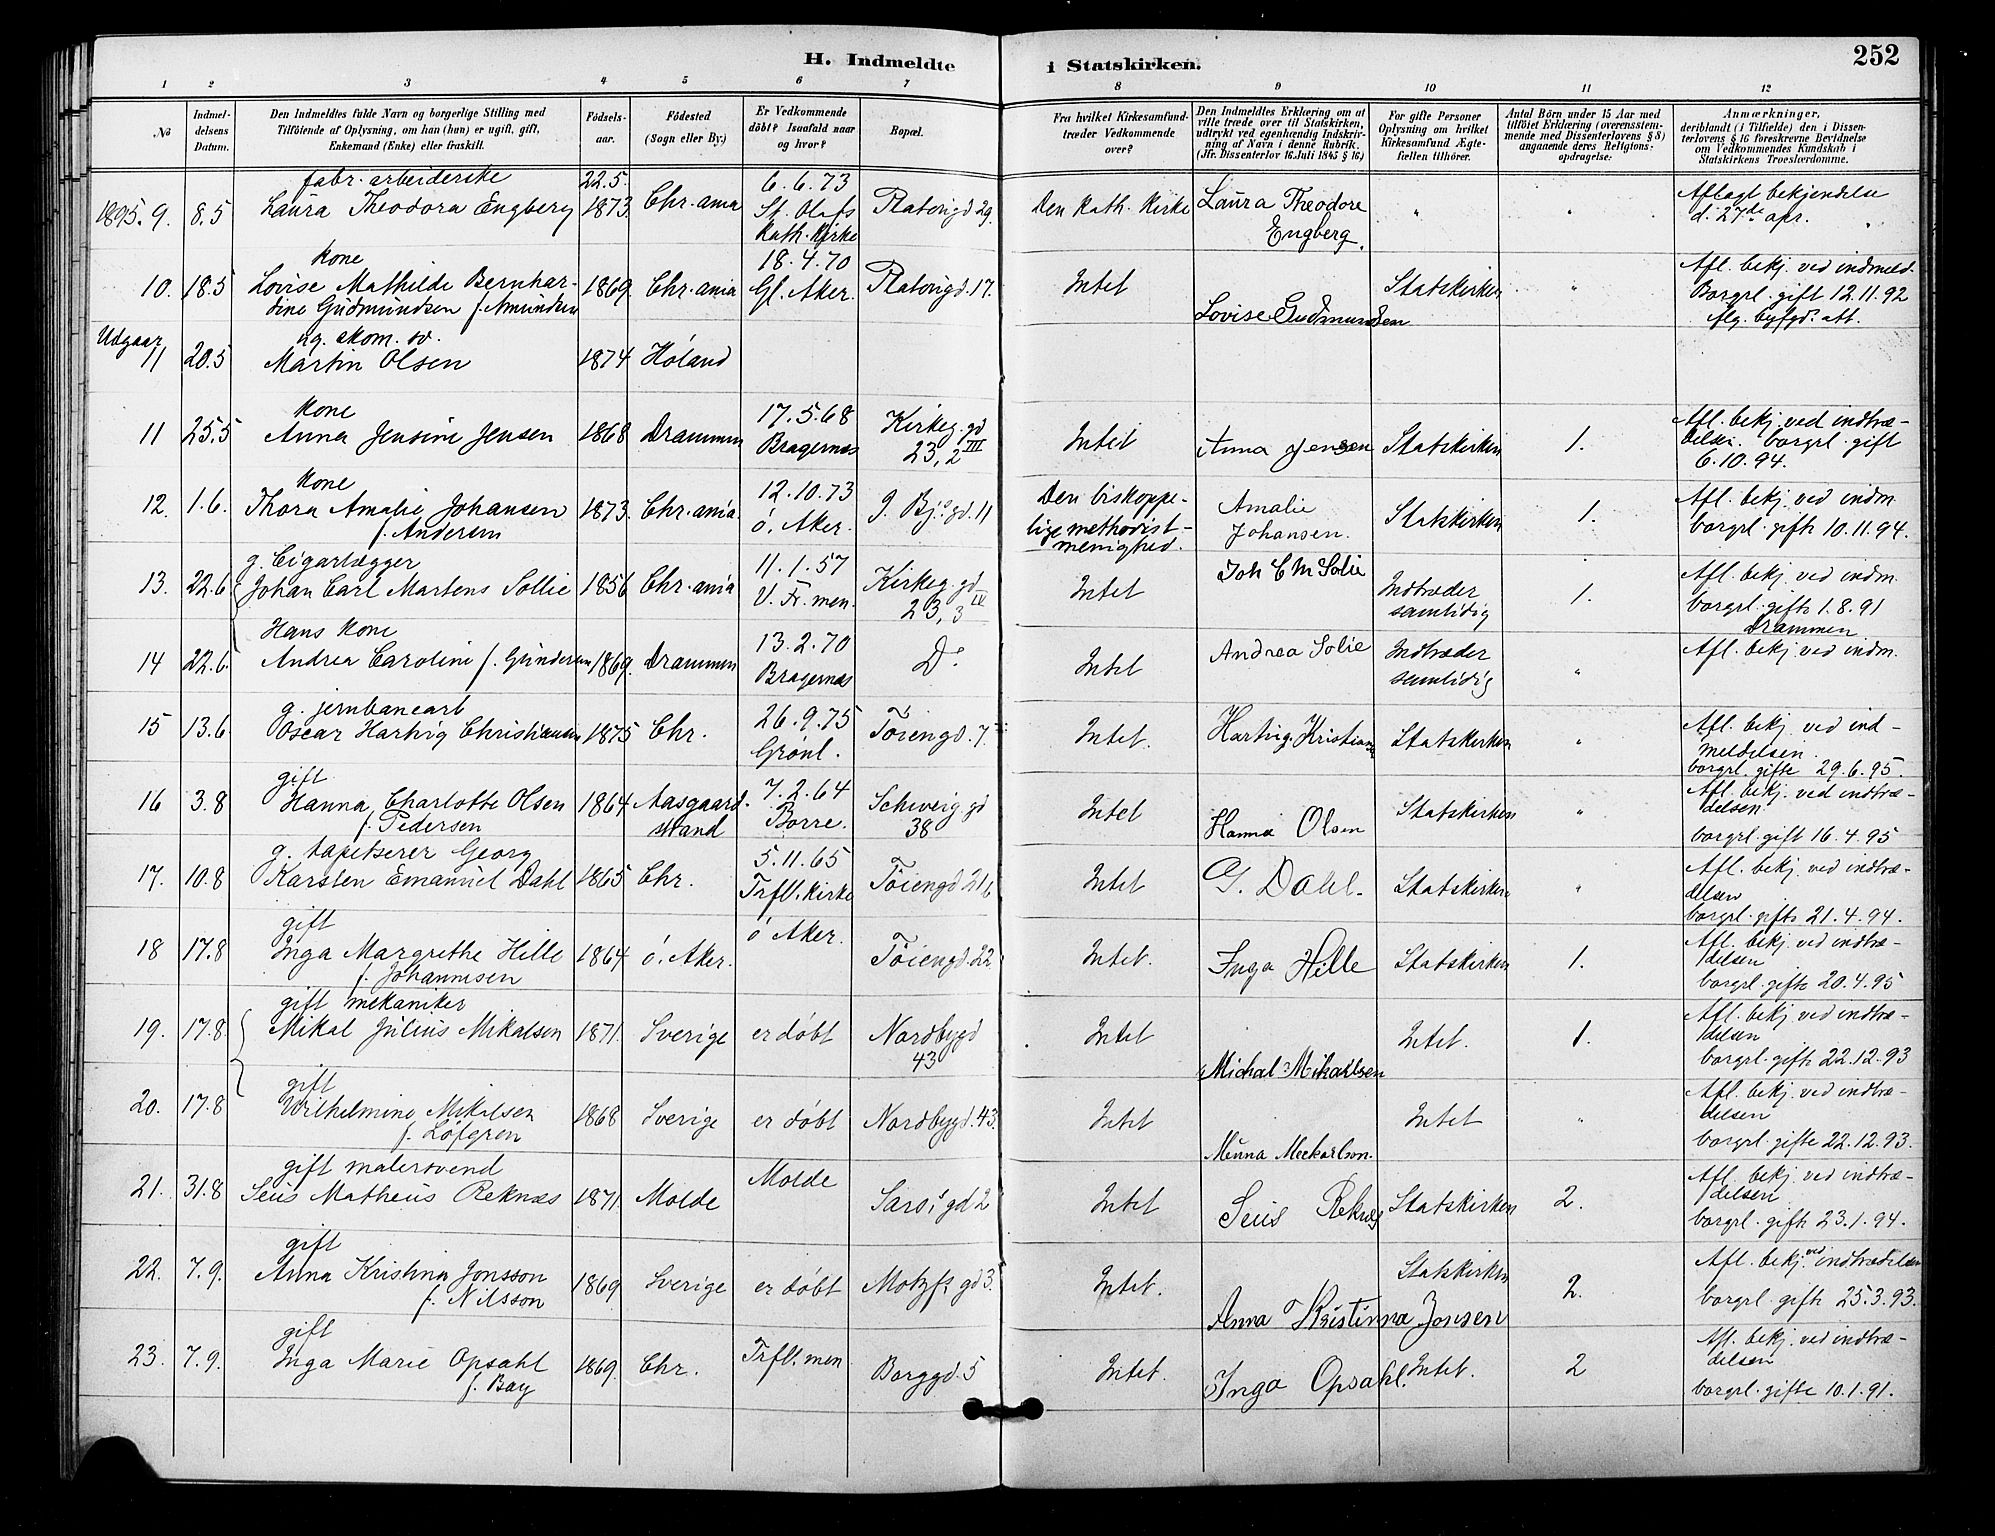 252
H. Indmeldte i Statskirken.
1 2 3 4 5 6 7 8 9 10 11 12
No
Indmel-
delsens
Datum.
Den Indmeldtes fulde Navn og borgerlige Stilling med
Tilföiende af Oplysning, om han (hun) er ugift, gift,
Enkemand (Enke) eller fraskilt.
Födsels-
aar.
Födested
(Sogn eller By.)
Er Vedkommende
döbt? Isaafald naar
og hvor?
Bopæl.
Fra hvilket Kirkesamfund
træder Vedkommende
over?
Den Indmeldtes Erklæring om at
ville træde over til Statskirken,
udtrykt ved egenhændig Indskriv-
ning af Navn i denne Rubrik.
(Jfr. Dissenterlov 16 Juli 1845 § 16)
For gifte Personer
Oplysning om hvilket
Kirkesamfund Ægte-
fællen tilhörer.
Antal Börn under 15 Aar med
tilföiet Erklæring (overensstem-
mende med Dissenterlovens § 8)
angaaende deres Religions-
opdragelse:
Anmærkninger,
deriblandt (i Tilfælde) den i Dissen-
terlovens § 16 foreskrevne Bevidnelse
om Vedkommendes Kundskab i
Statskirkens Troeslærdomme.
fabr. arbeiderske 22.5. 6.6.73
1895. 9. 8.5 Laura Theodora Engberg 1873 Chr.ania St. Olafs Platousgd 29.
Kath. Kirke
Den kath. Kirke Laura Theodore " " Aflagt bekjendelse
Engberg. d. 27de apr. "
kone 18.4.70
10. 18.5 Lovise Mathilde Bernhar- 1869. Chr.ania Gl. Aker. Platousgd. 17.
dine Gudmundsen f. Amundsen
Intet Lovise Gudmundsen Statskirken " Afl. bekj. ved indmeld.
Borgrl. gift 12.11.92
flg. byfgd. att.
Udgaar ug. skom. sv.
11 20.5 Martin Olsen 1874 Høland
kone 17.5.68 Kirkeg. gd
11 25.5 Anna Jensine Jensen 1868 Drammen Bragernæs 23, 2 III
Intet Anna Jensen Statskirken 1. Afl. bekj. ved indtræ-
delsen. borgrl. gift
6.10.94.
kone 12.10.73
12. 1.6. Thora Amalie Johansen 1873. Chr.ania ö. Aker. g. Bj. gd. 11
f. Andersen
Den biskoppe- Amalie Statskirken 1. Afl. bekj. ved indm.
lige methodist- Johansen. borgrl. gifte 10.11.94.
menighed.
g. Cigarlægger 11.1.57 Kirkeg. gd
13. 22.6 Johan Carl Martens Sollie 1856 Chr.ania V. Fr. men. 23, 3 IV
Intet Joh C M Solie Indtræder 1. Afl. bekj. ved indm.
samtidig borgrl. gifte 1.8.91
Drammen
Hans kone 13.2.70
14 22.6. Andrea Caroline f. Gundersen 1869. Drammen Bragernæs Do
Intet Andrea Solie Indtræder " Afl. bekj. ved indm.
samtidig
g. jernbanearb 26.9.75
15 13.6 Oscar Hartvig Christiansen 1875 Chr. Grönl. Töiengd. 7.
Intet. Hartvig. Kristiansen Statskirken " Afl. bekj. ved ind-
meldelsen
borgrl. gifte 29.6.95.
gift 7.2.64
16 3.8 Hanna Charlotte Olsen 1864 Aasgaard- Borre. Schweig. gd
f. Pedersen strand 38
Intet Hanna Olsen Statskirken " Afl. bekj. ved indtræ-
delsen.
borgrl. gift 16.4.95
g. tapetserer Georg 5.11.65
17. 10.8 Karsten Emanuel Dahl 1865 Chr. Trfl. kirke Töiengd 21b
Intet G. Dahl. Statskirken " Afl. bekj. ved indtræ-
delsen
borgrl. gifte 21.4.94.
gift ö Aker.
18 17.8 Inga Margrethe Hille 1864 ö. Aker. Töiengd. 22
f. Johannesen
Intet. Inga Hille Statskirken 1. Afl. bekj. ved indtræ-
delsen
borgrl. gifte 20.4.95
gift mekaniker
19. 17.8 Mikal Julius Mikalsen 1871. Sverige er döbt Nordbygd
43
Intet Michal Mikarlsen Intet. 1. Afl. bekj. ved indtræ-
delsen
borgrl. gifte 22.12.93
gift
20. 17.8 Wilhelmine Mikalsen 1868 Sverige er döbt Nordbygd. 43.
f. Löfgren
Intet Minna Meekarlson. Intet " Afl. bekj. ved indtræ-
delsen
borgrl. gifte 22.12.93.
gift malersvend Molde
21. 31.8 Seus Matheus Reknæs 1871. Molde Sars' gd 2
Intet Seus Reknæs Statskirken 2. Afl. bekj. ved indtræ-
delsen
borgrl. gifte 23.1.94.
gift
22. 7.9. Anna Kristina Jonsson 1869 Sverige er döbt Motzfs gd 3.
f. Nilsson
Intet. Anna Kristinna Jonsen Statskirken 2. Afl. bekj. ved indtrædelsen
borgrl. gifte 25.3.93.
gift
23. 7.9. Inga Marie Opsahl 1869. Chr. Trfl. men Borggd. 5
f. Bay
Intet. Inga Opsahl. Intet. 2 Afl. bekj. ved indtræ-
delsen
borgrl. gifte 10.1.91.